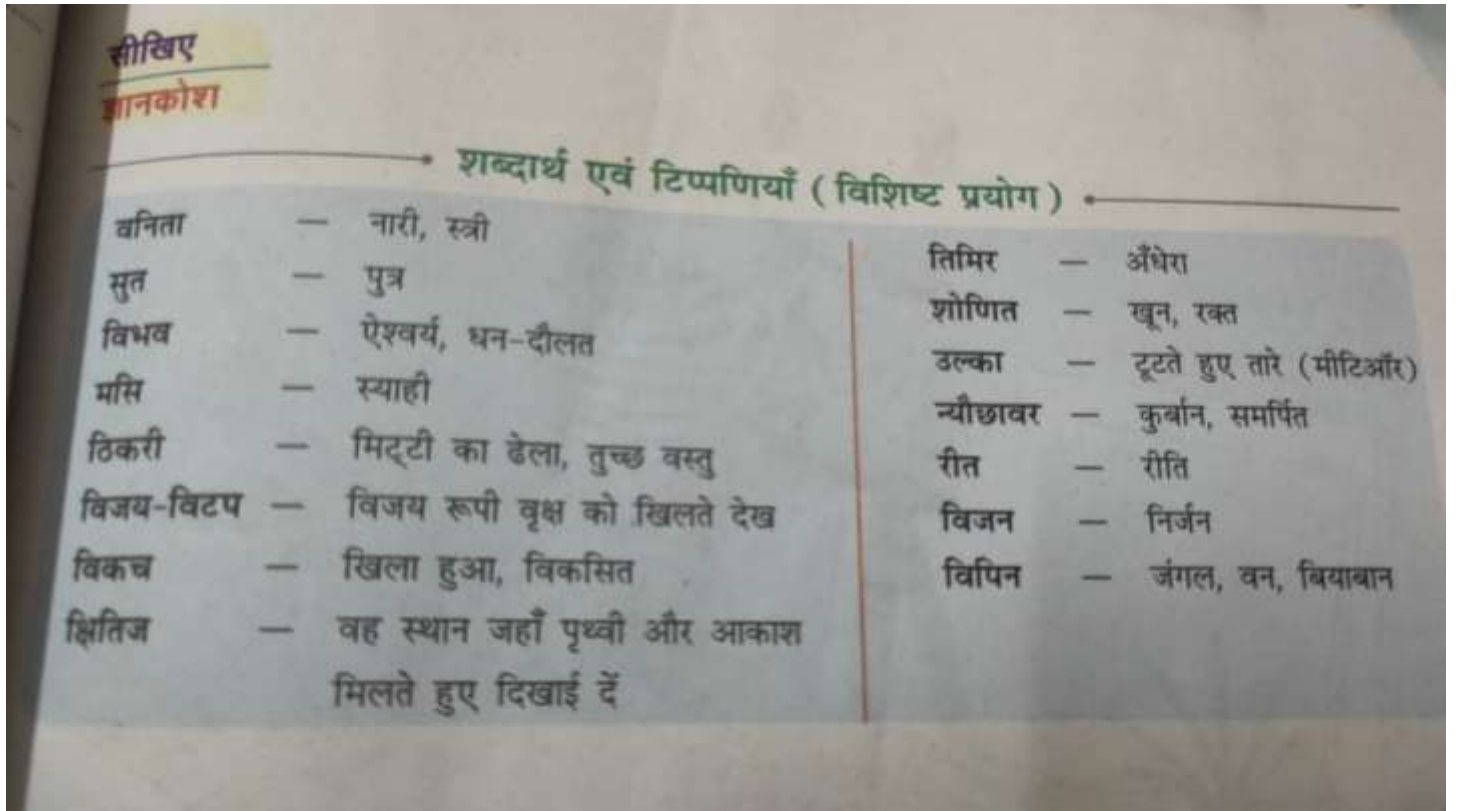 सीखिए
ज्ञानकोश
शब्दार्थ एवं टिप्पणियाँ ( विशिष्ट प्रयोग )
वनिता — नारी, स्त्री
सुत — पुत्र
विभव — ऐश्वर्य, धन-दौलत
मसि — स्याही
ठिकरी — मिट्टी का ढेला, तुच्छ वस्तु
विजय-विटप — विजय रूपी वृक्ष को खिलते देख
विकच — खिला हुआ, विकसित
क्षितिज — वह स्थान जहाँ पृथ्वी और आकाश
मिलते हुए दिखाई दें
तिमिर — अँधेरा
शोणित — खून, रक्त
उल्का — टूटते हुए तारे (मीटिऑर)
न्यौछावर — कुर्बान, समर्पित
रीत — रीति
विजन — निर्जन
विपिन — जंगल, वन, बियाबान